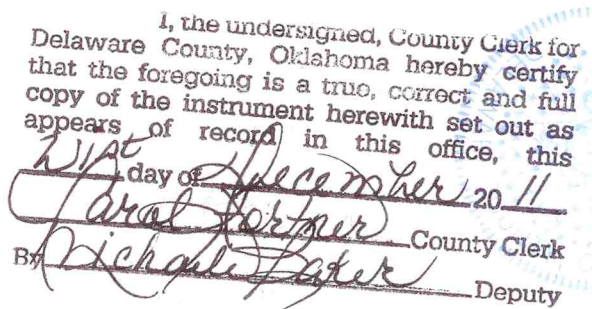 I, the undersigned, County Clerk for
Delaware County, Oklahoma hereby certify
that the foregoing is a true, correct and full
copy of the instrument herewith set out as
appears of record in this office, this
21st day of December 20 11
Carol Fortner County Clerk
By Michaele Baker Deputy